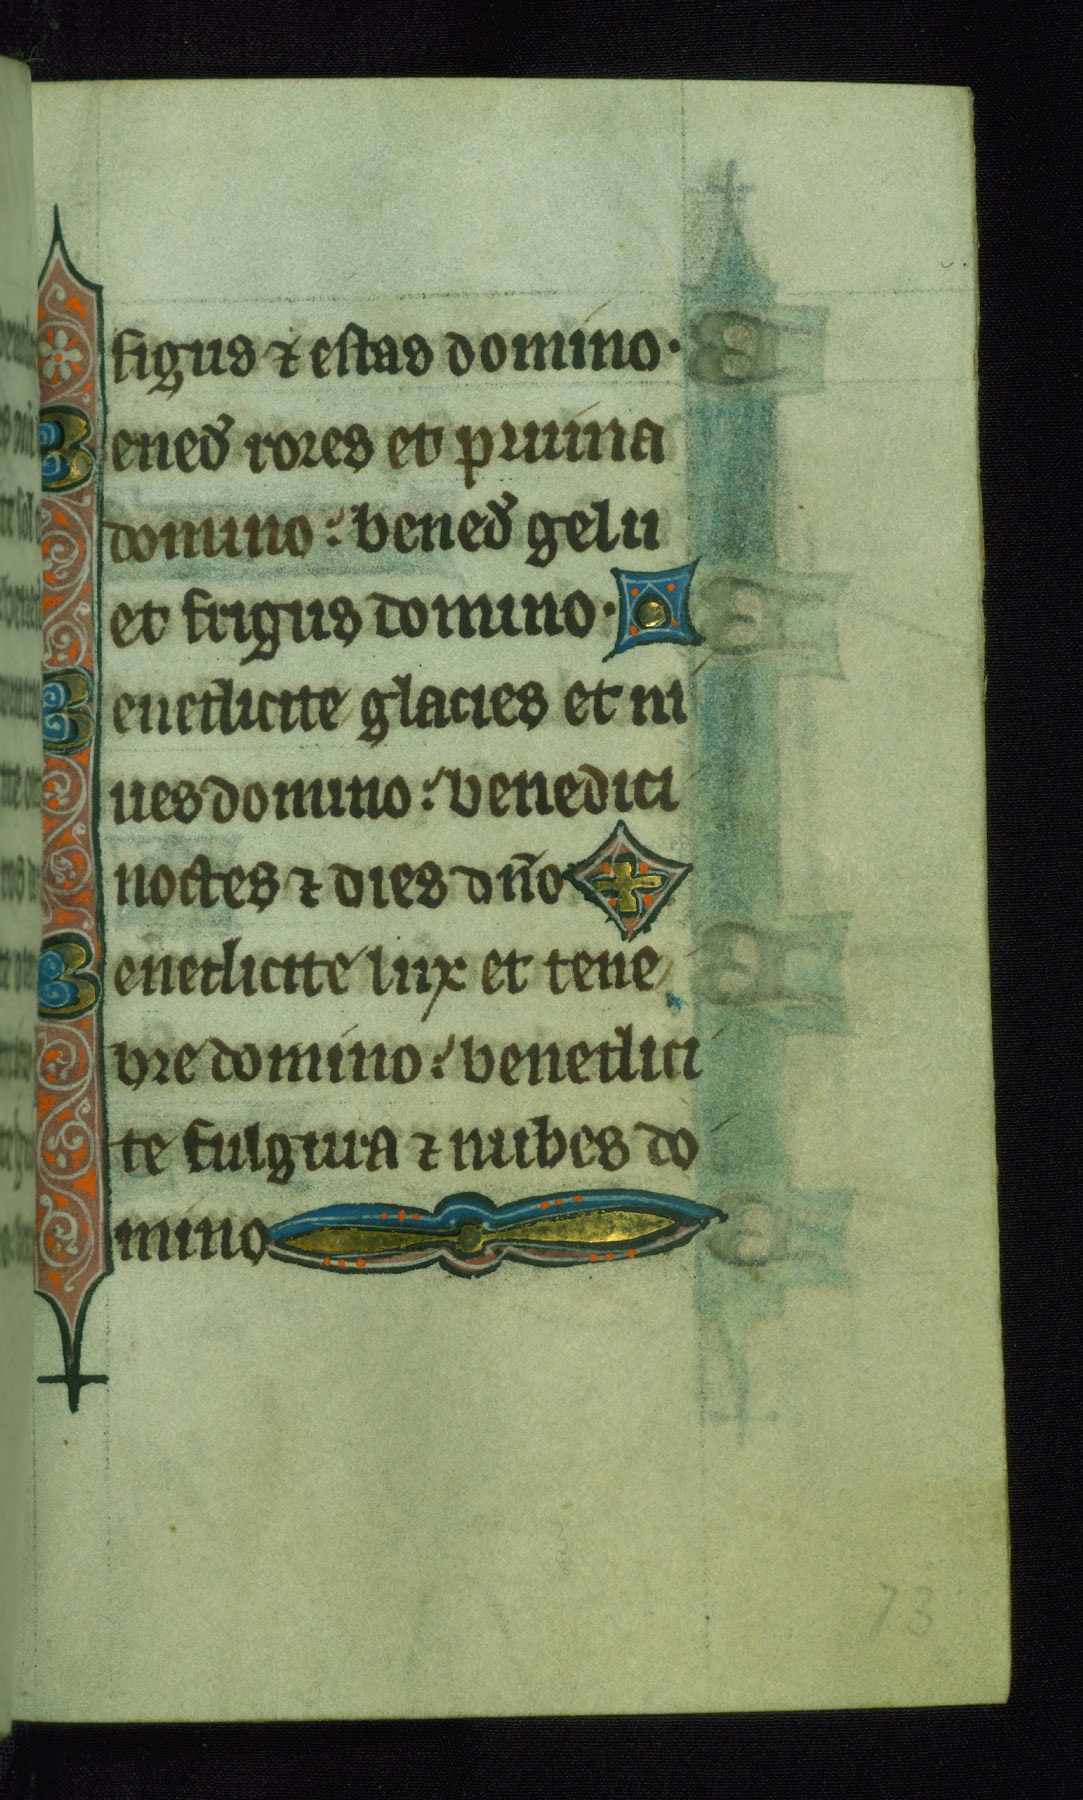 figus ⁊ estas domino·
Bened̃ rores et pruuina
domino: bened̃ gelu
et frigus domino·
Benedicite glacies et ni
ues domino: benedici
noctes ⁊ dies dño
Benedicite lux et tene
bre domino: benedici
te fulgura ⁊ nubes do
mino
73